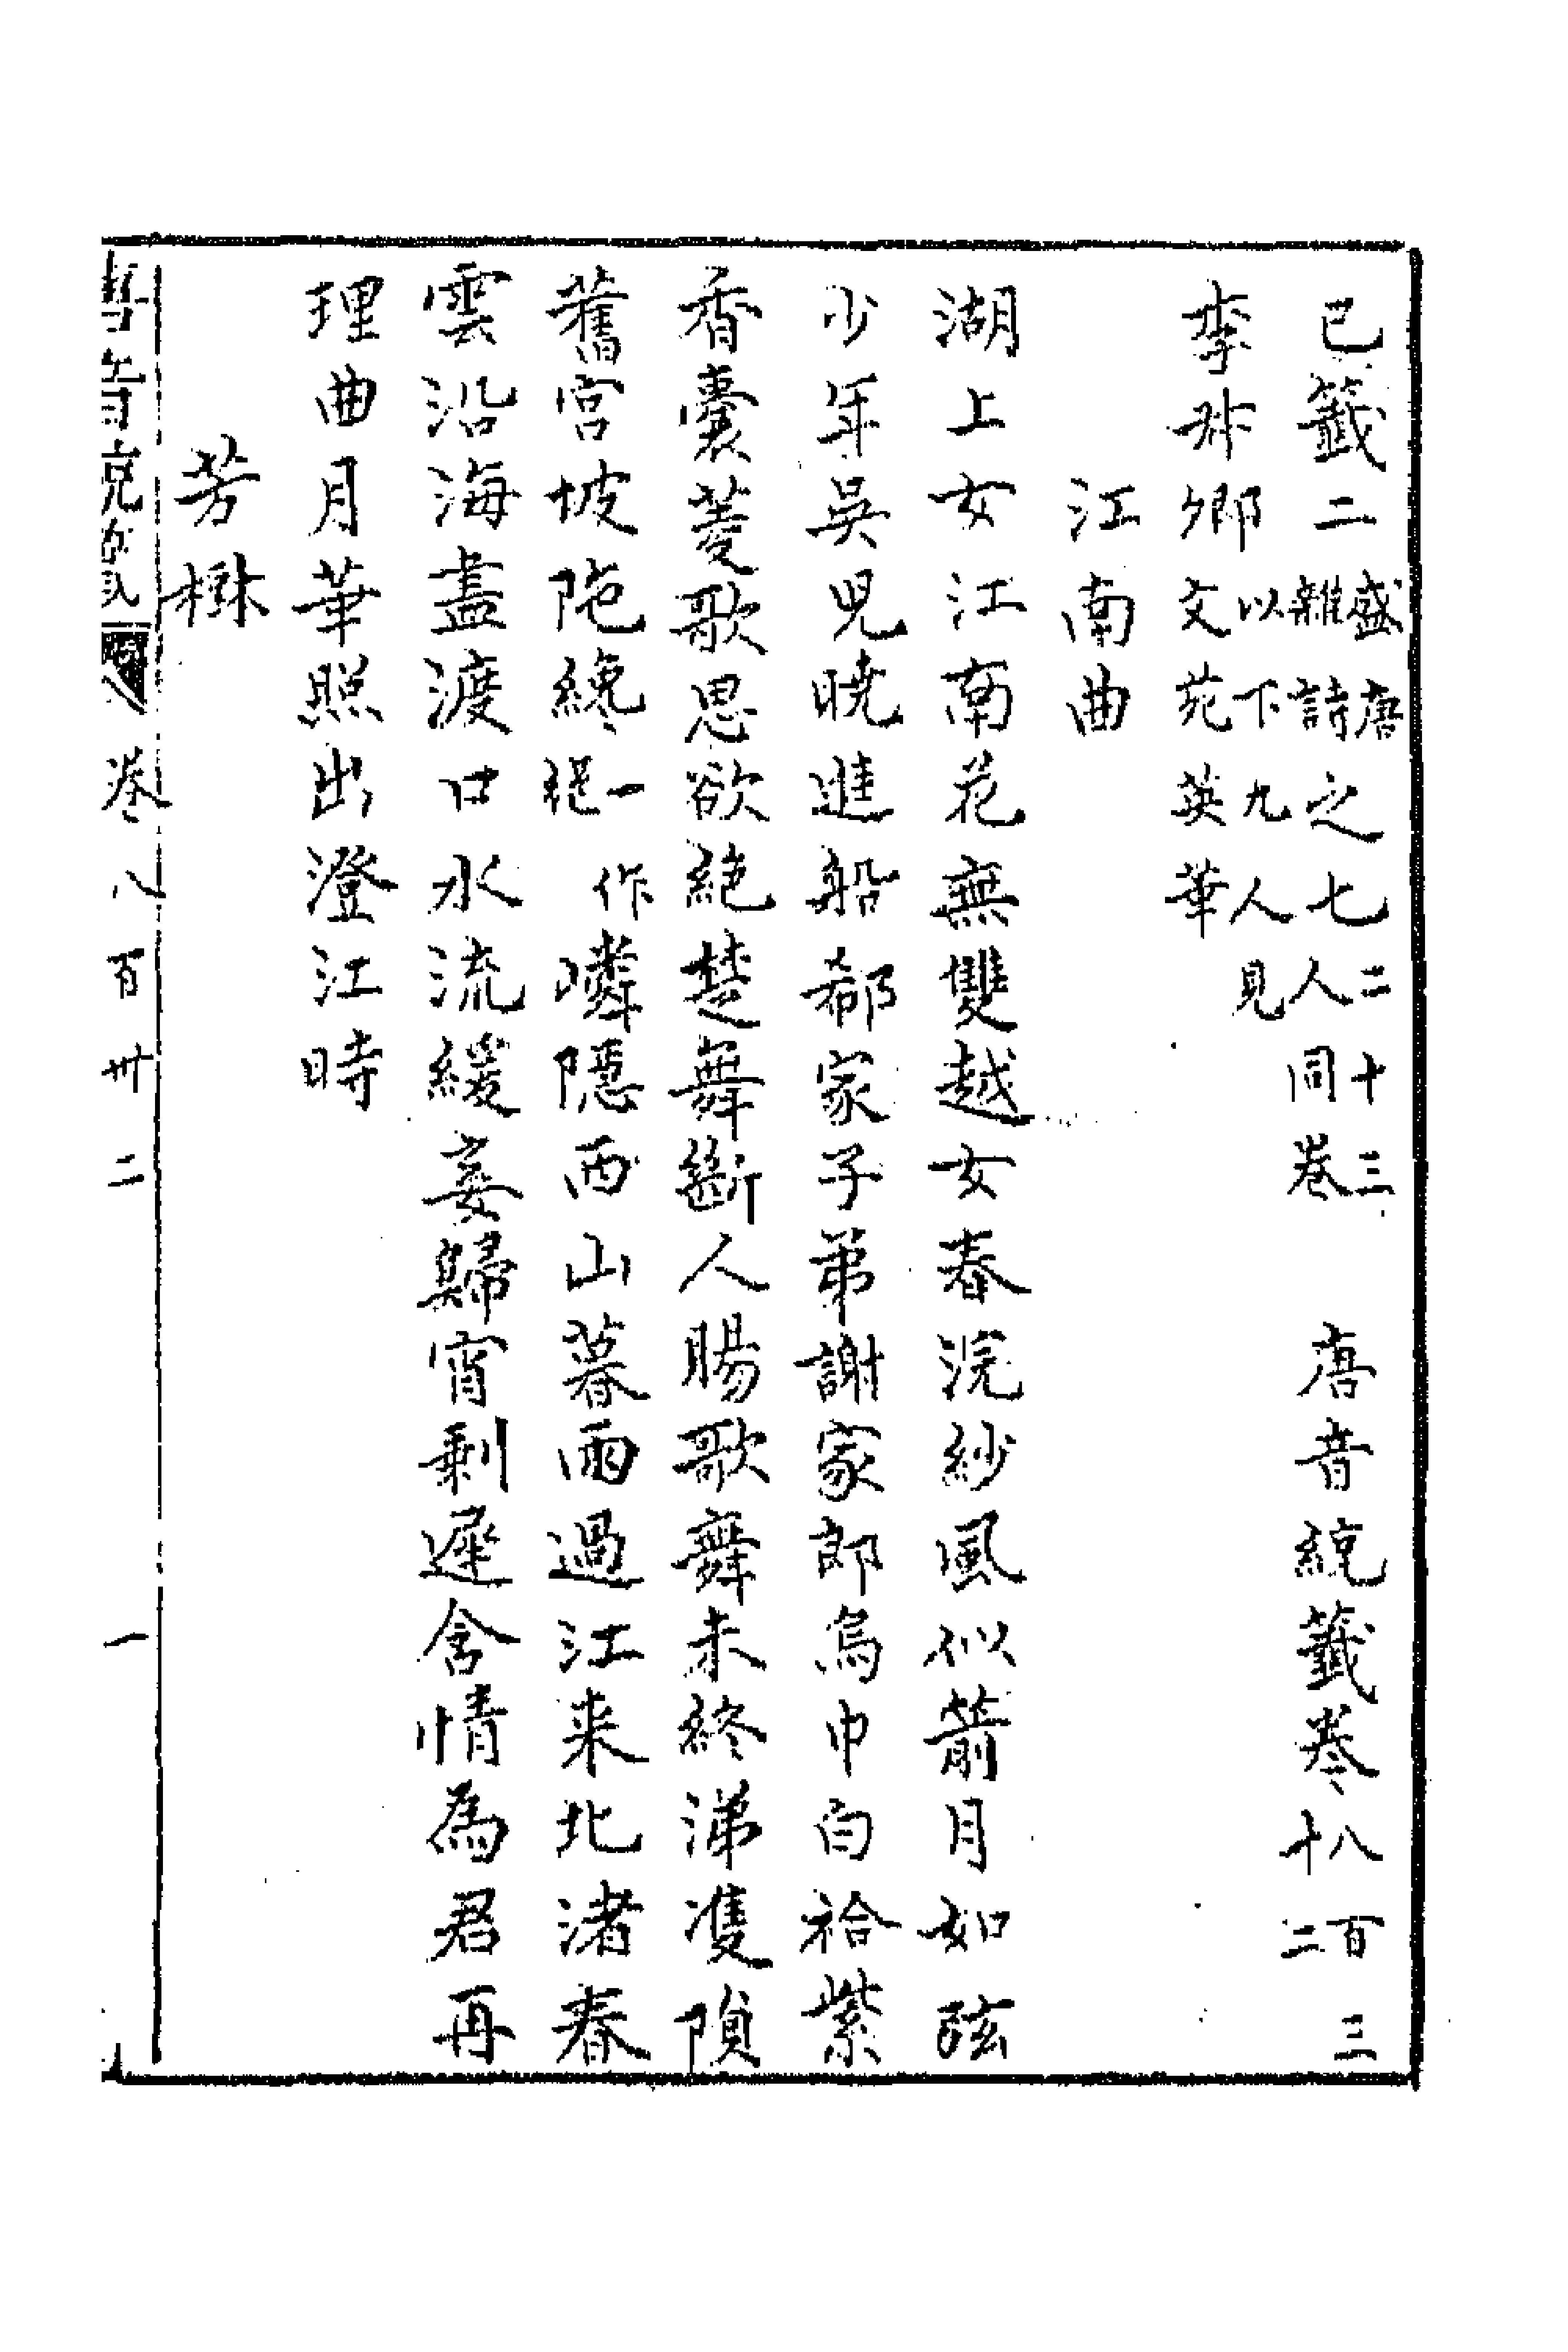 已籤二盛唐雜詩之七二十三人同卷　唐音統籤卷八百三十二
李叔卿以下九人見文苑英華
江南曲
湖上女江南花無雙越女春浣紗風似箭月如弦
少年吳兒曉進船郗家子弟謝家郎烏巾白袷紫
香囊菱歌思欲絕楚舞斷人腸歌舞未終涕雙隕
舊宮坡陁纔一作嶙隱西山暮雨過江来北渚春
雲沿海盡渡口水流緩妾歸宵剩遲含情為君再
理曲月華照出澄江時
芳樹
卷八百卅二　一